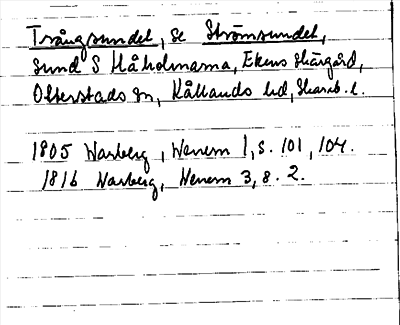 Trångsundet, se Strömsundet,
sund S Håholmarna, Ekens Skärgård,
Otterstads sn, Kållands hd, Skarab. l.
1805 Warberg, Wenern 1, s. 101, 104.
1816 Warberg, Wenern 3, s. 2.